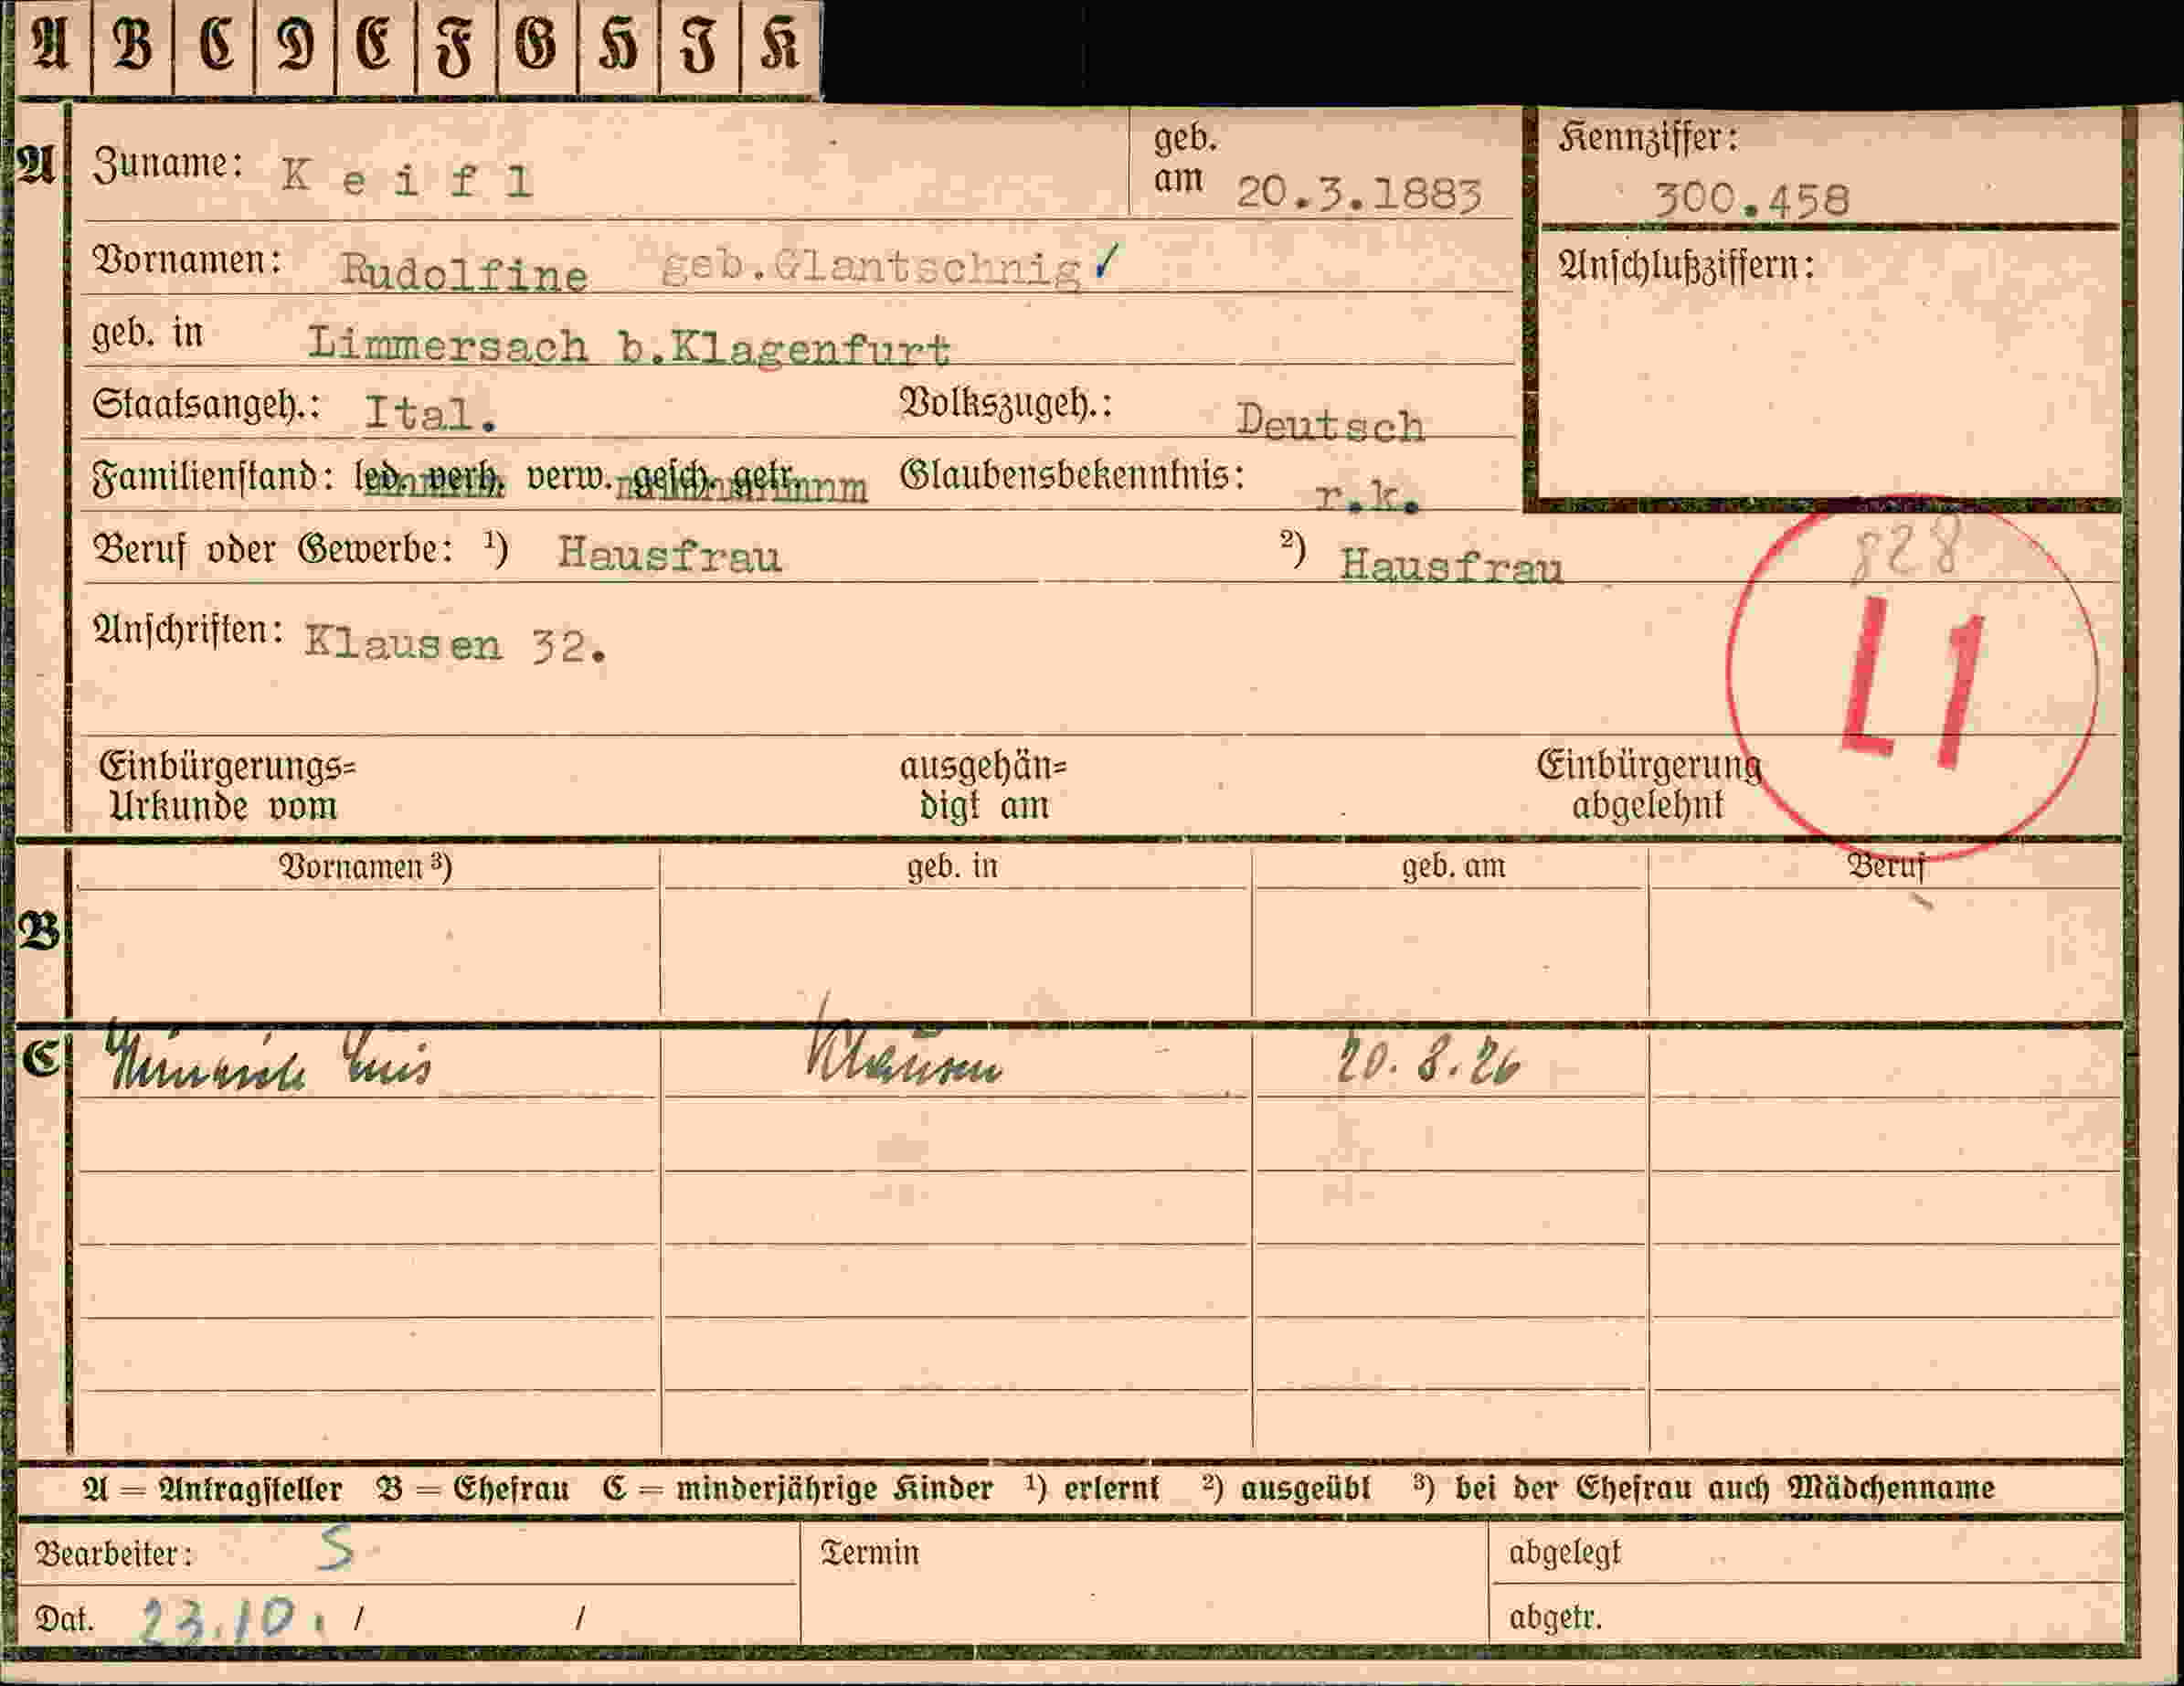 A B C D E F G H I K
A Zuname: Keifl geb. am 20.3.1883 Kennziffer: 300.458
Vornamen: Rudolfine geb.Glantschnig ✓ Anschlußziffern:
geb. in Limmersach b.Klagenfurt
Staatsangeh.: Ital. Volkszugeh.: Deutsch
Familienstand: led. verh. verw. gesch. getr. Glaubensbekenntnis: r.k.
Beruf oder Gewerbe: ¹) Hausfrau ²) Hausfrau
828
L1
Anschriften: Klausen 32.
Einbürgerungs= Urkunde vom ausgehän= digt am Einbürgerung abgelehnt
Vornamen ³) geb. in geb. am Beruf
B
C Luis Klausen 20.8.26
A = Antragsteller B = Ehefrau C = minderjährige Kinder ¹) erlernt ²) ausgeübt ³) bei der Ehefrau auch Mädchenname
Bearbeiter: S Termin abgelegt
Dat. 23.10. / / abgetr.